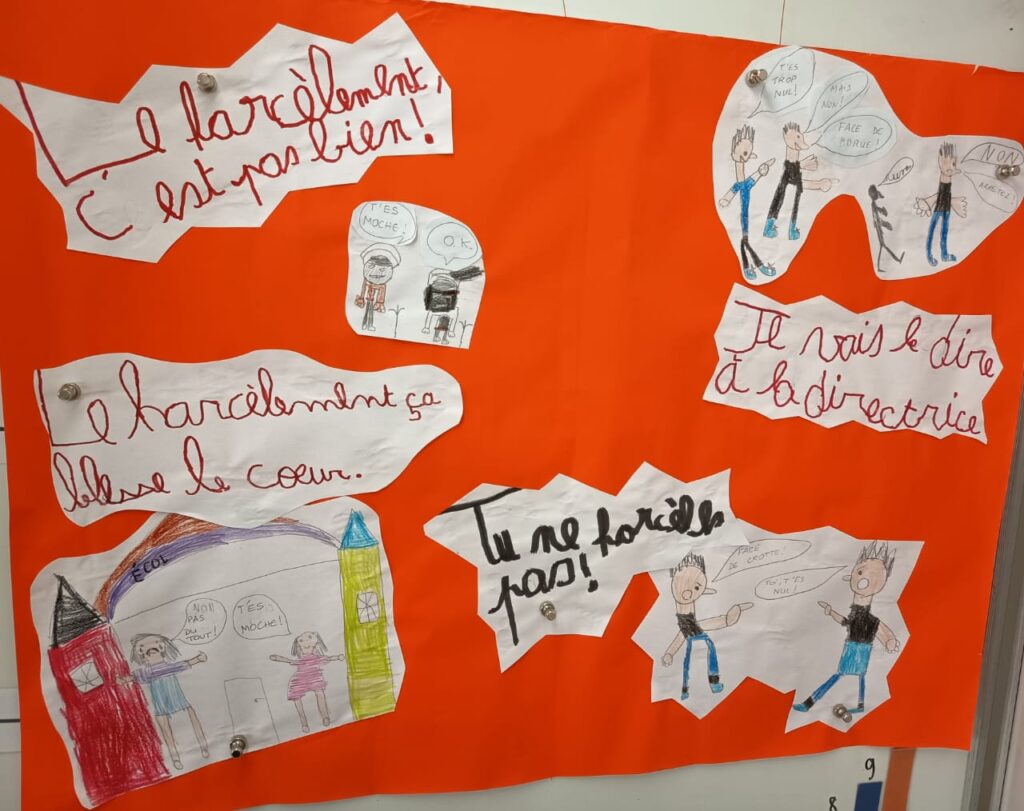 Le harcèlement,
C'est pas bien!
T'ES
MOCHE!
O.K.
T'ES
TROP
NUL!
MAIS
NON!
FACE DE
MORUE!
NON
ARRETEZ!
Je vais le dire
à la directrice
Le harcèlement ça
blesse le coeur.
ÉCOL
NON
PAS
DU
TOUT!
T'ES
MOCHE!
Tu ne harcèles
pas!
FACE
DE CROTTE!
TOI, T'ES
NUL!
9
8